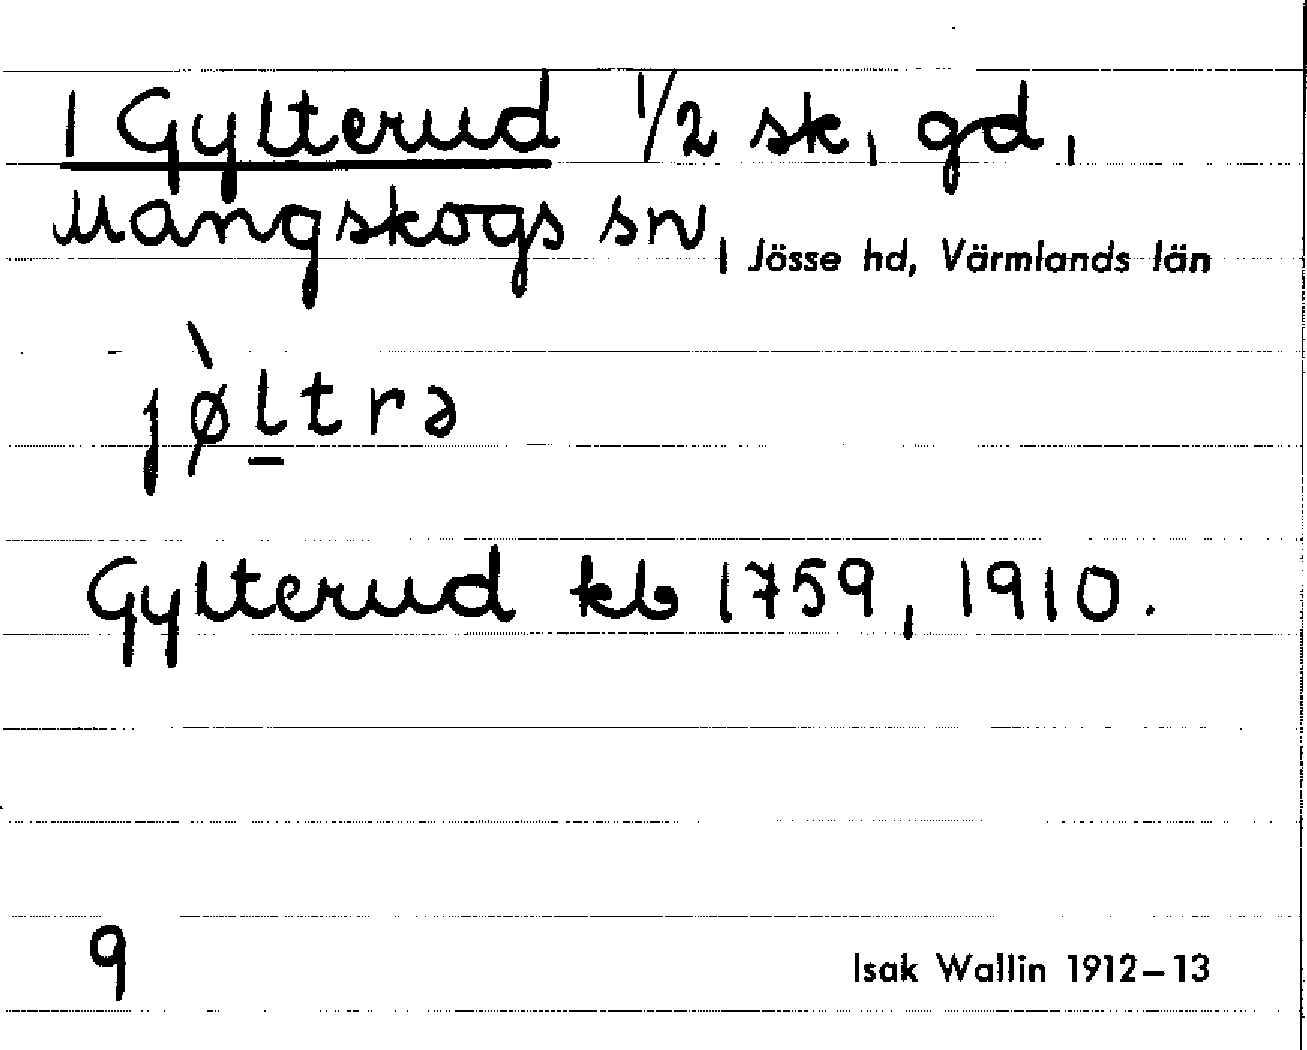 1 Gylterud 1/2 sk, gd,
Mangskogs sn, Jösse hd, Värmlands län
jø̀l̲trə
Gylterud kb 1759, 1910.
9
Isak Wallin 1912–13